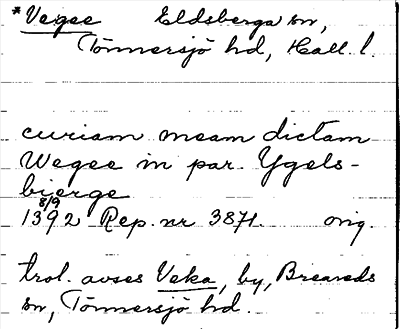 *Vegee Eldsberga sn,
Tönnersjö hd, Hall. l.
curiam meam dictam
Wegee in par. Ygels-
bierge
8/9
1392 Rep. nr 3871. orig.
trol. avses Veka, by, Breareds
sn, Tönnersjö hd.